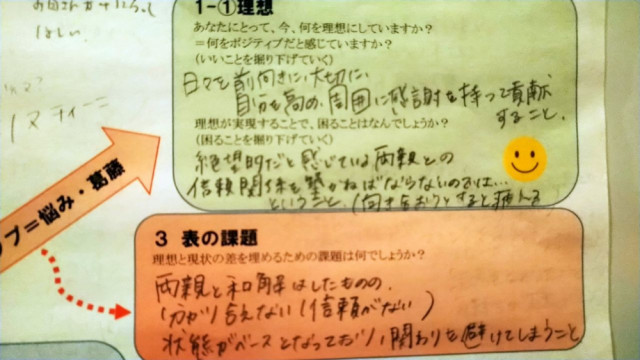 お母さんが
ほしい。
1-① 理想
あなたにとって、今、何を理想にしていますか?
=何をポジティブだと感じていますか?
(いいことを掘り下げていく)
日々を前向きに、大切に、
自分を高め、周囲に感謝を持って貢献
すること。
理想が実現することで、困ることはなんでしょうか?
(困ることを掘り下げていく)
絶望的だと感じている両親との
信頼関係を繋がねばならないのでは…
ということ。(向き合おうとすると病んる
ップ=悩み・葛藤
3 表の課題
理想と現状の差を埋めるための課題は何でしょうか?
両親と和解はしたものの、
分かり合えない(信頼がない)
状態がベースとなっており、関わりを避けてしまうこと